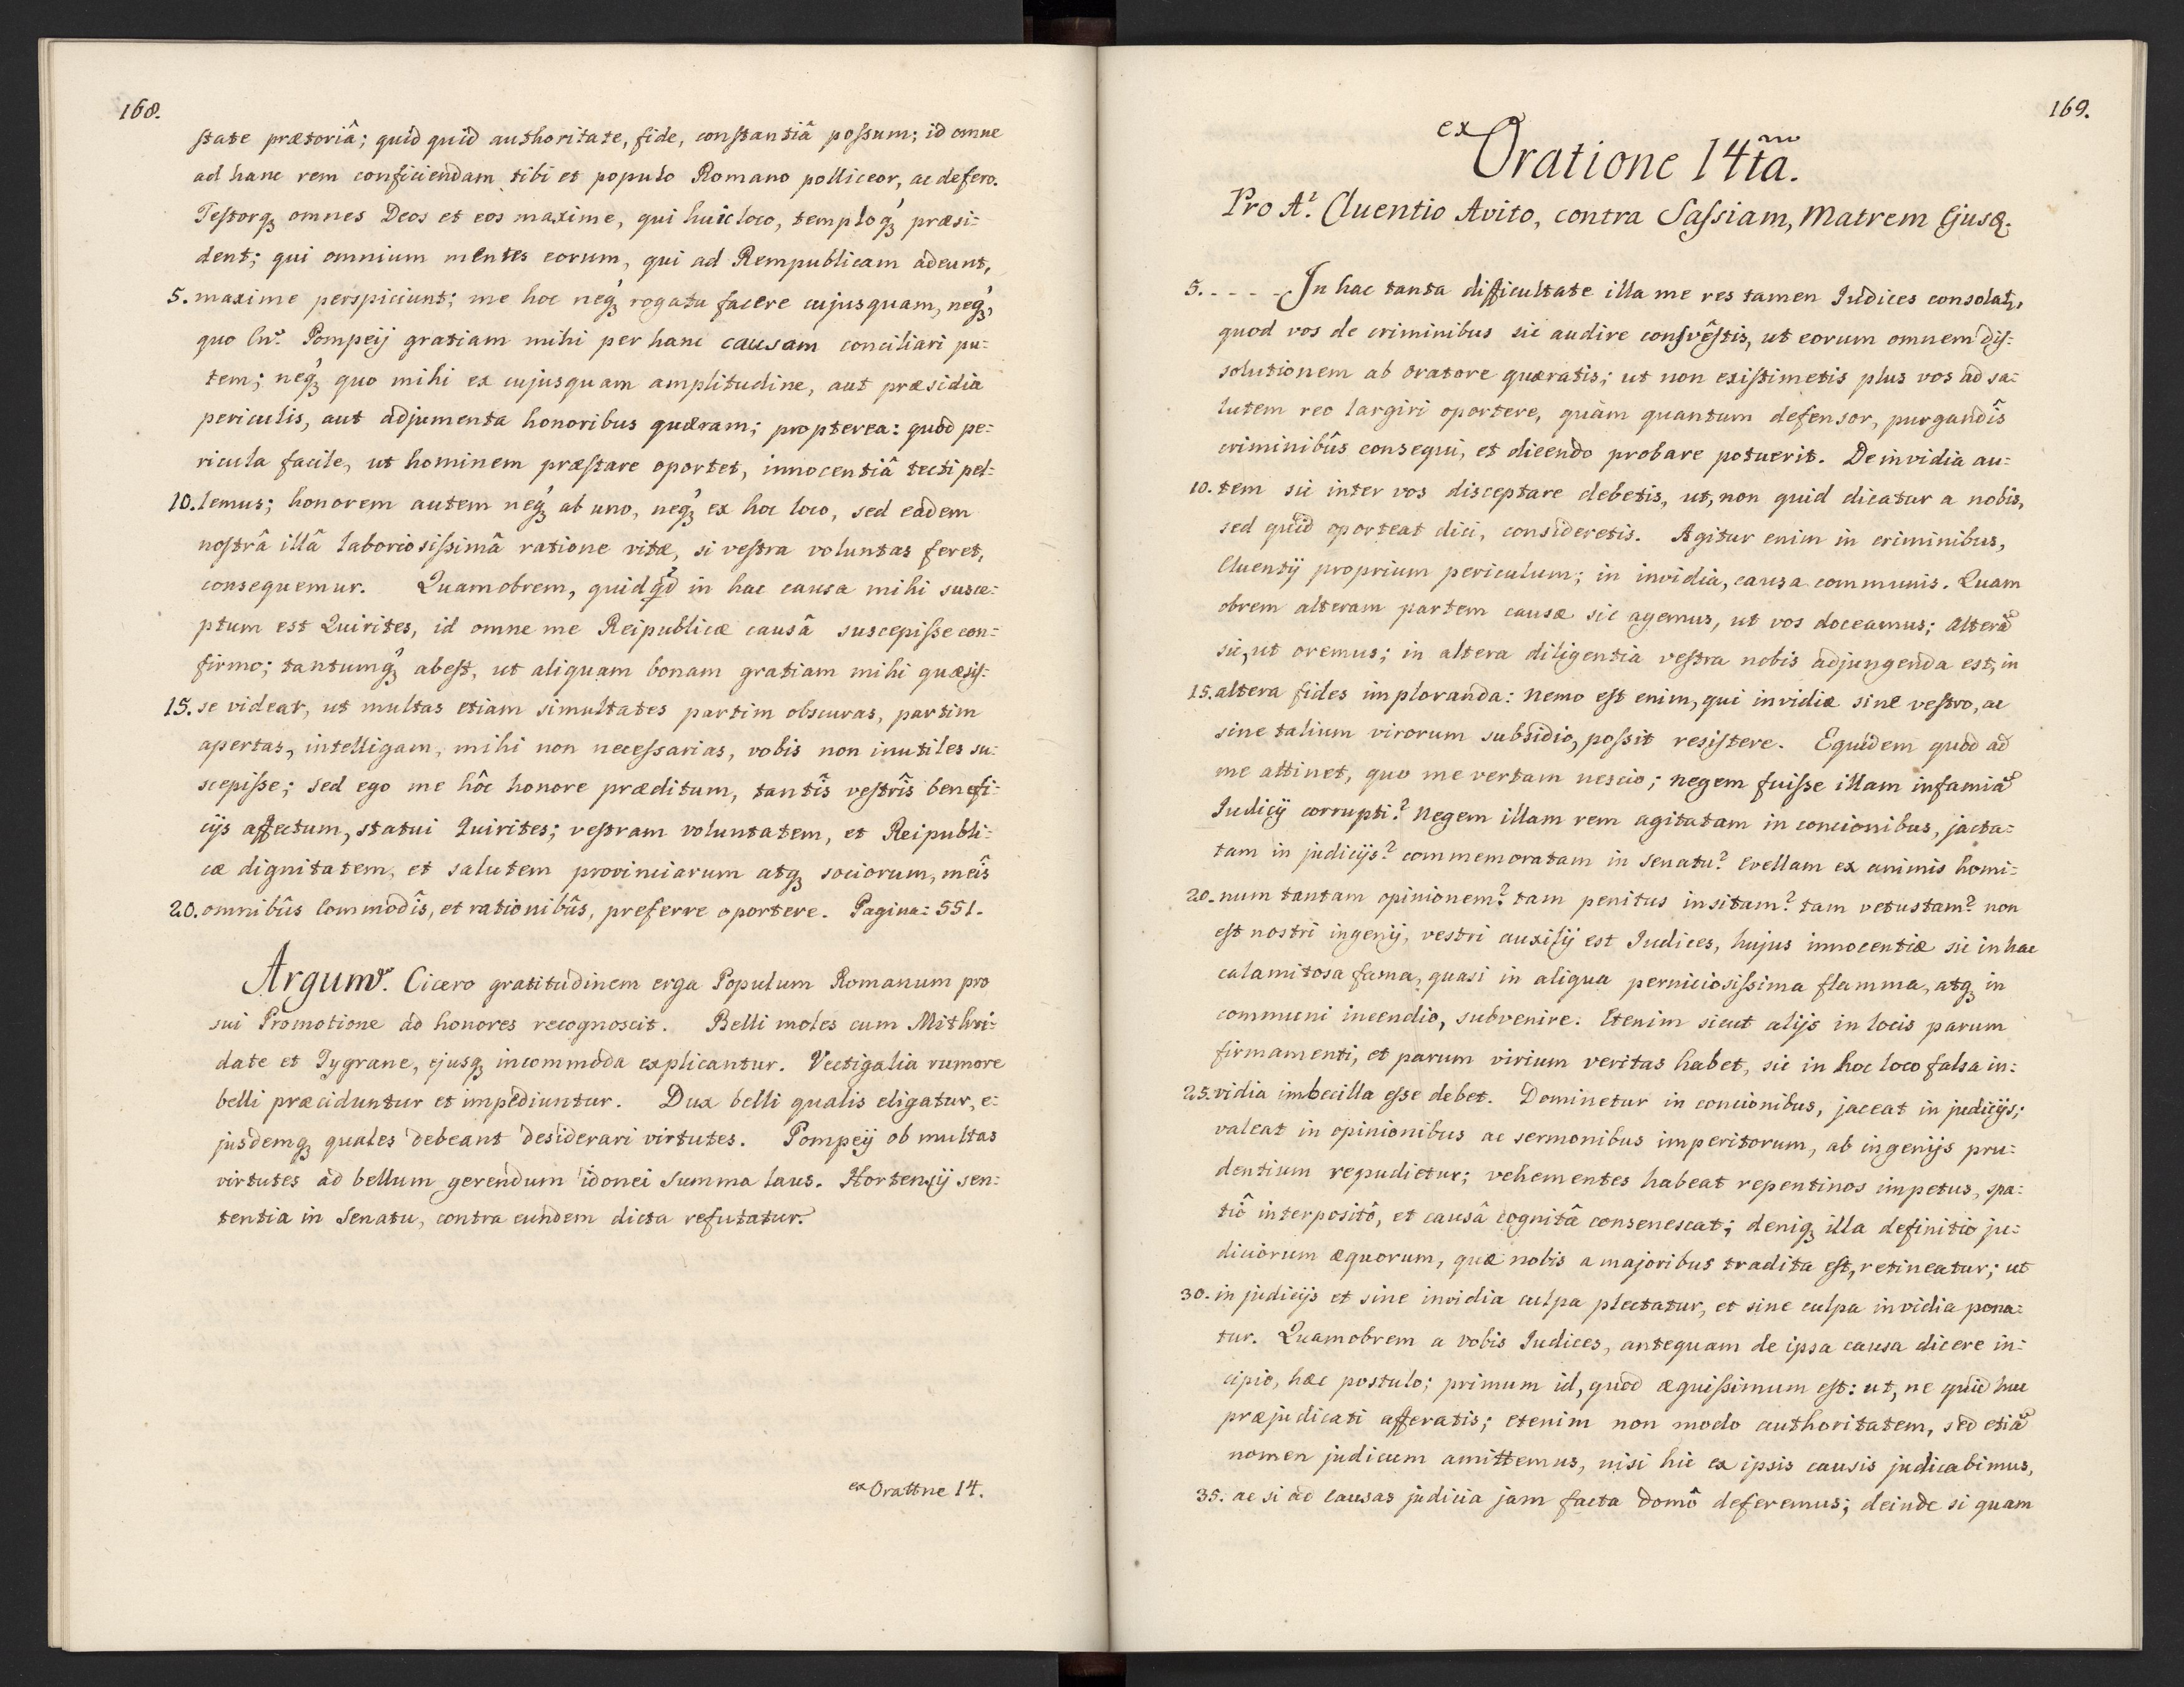 168.
state prætoriâ; quid quid authoritate, fide, constantiâ possum; id omne
ad hanc rem conficiendam tibi et populo Romano polliceor, ac defero.
Testorq́ꝫ omnes Deos et eos maxime, qui huic loco, temploq́ꝫ præsi=
dent; qui omnium mentes eorum, qui ad Rempublicam adeunt,
5. maxime perspiciunt; me hoc neq́ꝫ rogatu facere cujusquam, neq́ꝫ,
quo Cn. Pompeij gratiam mihi per hanc causam conciliari pu=
tem; neq́ꝫ quo mihi ex cujusquam amplitudine, aut præsidia
periculis, aut adjumenta honoribus quæram; propterea: quod pe=
ricula facile, ut hominem præstare oportet, innocentiâ tecti pel=
10. lemus; honorem autem neq́ꝫ ab uno, neq́ꝫ ex hoc loco, sed eadem
nostrâ illâ laboriosissimâ ratione vitæ, si vestra voluntas feret,
consequemur. Quamobrem, quidq̇d in hac causa mihi susce=
ptum est Quirites, id omne me Reipublicæ causâ suscepisse con=
firmo; tantumq́ꝫ abest, ut aliquam bonam gratiam mihi quæsis=
15. se videar, ut multas etiam simultates partim obscuras, partim
apertas, intelligam, mihi non necessarias, vobis non inutiles su=
scepisse; sed ego me hôc honore præditum, tantîs vestrîs benefi=
cijs affectum, statui Quirites; vestram voluntatem, et Reipubli=
cæ dignitatem, et salutem provinciarum atqꝫ sociorum, meîs
20. omnibûs commodîs, et rationibûs, preferre oportere. Pagina: 551.
Argum. Cicero gratitudinem erga Populum Romanum pro
sui Promotione ad honores recognoscit. Belli moles cum Mithri=
date et Tygrane, ejusqꝫ incommoda explicantur. Vectigalia rumore
belli præciduntur et impediuntur. Dux belli qualis eligatur, e=
jusdemqꝫ quales debeant desiderari virtutes. Pompeij ob multas
virtutes ad bellum gerendum idonei summa laus. Hortensij sen=
tentia in Senatu, contra eundem dicta refutatur.
ex Orattne 14.
169.
ex Oratione 14ta.
Pro A. Cluentio Avito, contra Sassiam, Matrem Ejus.
5. - - - - In hac tanta difficultate illa me res tamen Iudices consolatꝫ,
quod vos de criminibus sic audire consvêstis, ut eorum omnem dis=
solutionem ab oratore quæratis; ut non existimetis plus vos ad sa=
lutem reo largiri oportere, quàm quantum defensor, purgandîs
criminibûs consequi, et dicendo probare potuerit. De invidia au=
10. tem sic inter vos disceptare debetis, ut, non quid dicatur a nobis,
sed quid oporteat dici, consideretis. Agitur enim in criminibus,
Cluentij proprium periculum; in invidia, causa communis. Quam
obrem alteram partem causæ sic agemus, ut vos doceamus; alterã
sic, ut oremus; in altera diligentia vestra nobis adjungenda est, in
15. altera fides imploranda: nemo est enim, qui invidiæ sine vestro, ac
sine talium virorum subsidio, possit resistere. Equidem quod ad
me attinet, quo me vertam nescio; negem fuisse illam infamiã
Iudicij corrupti? Negem illam rem agitatam in concionibus, jacta=
tam in judicijs? commemoratam in senatu? evellam ex animis homi=
20. num tantam opinionem? tam penitus insitam? tam vetustam? non
est nostri ingenij, vestri auxilij est Iudices, hujus innocentiæ sic in hac
calamitosa fama, quasi in aliqua perniciosissima flamma, atqꝫ in
communi incendio, subvenire. Etenim sicut alijs in locis parum
firmamenti, et parum virium veritas habet, sic in hoc loco falsa in=
25. vidia imbecilla esse debet. Dominetur in concionibus, jaceat in judicijs;
valeat in opinionibus ac sermonibus imperitorum, ab ingenijs pru=
dentium repudietur; vehementes habeat repentinos impetus, spa=
tiô interpositô, et causâ cognitâ consenescat; deniqꝫ illa definitio ju=
diciorum æquorum, quæ nobis a majoribus tradita est, retineatur; ut
30. in judicijs et sine invidia culpa plectatur, et sine culpa invidia pona=
tur. Quamobrem a vobis Iudices, antequam de ipsa causa dicere in=
cipio, hæc postulo; primum id, quod æquissimum est: ut, ne quid huc
præjudicati afferatis; etenim non modo authoritatem, sed etiã
nomen judicum amittemus, nisi hic ex ipsis causis judicabimus,
35. ac si ad causas judicia jam facta domô deferemus; deinde si quam